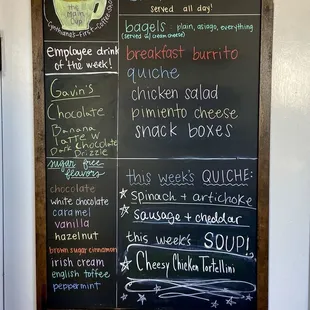 the Main Cup
Cynthiana's First Coffee Shop
employee drink
of the week!
Gavin's
Chocolate
Banana
latte w/
Dark Chocolate
Drizzle
sugar free
flavors
chocolate
white chocolate
caramel
vanilla
hazelnut
brown sugar cinnamon
irish cream
english toffee
peppermint
served all day!
bagels - plain, asiago, everything
(served w/ cream cheese)
breakfast burrito
quiche
chicken salad
pimiento cheese
snack boxes
this week's QUICHE:
spinach + artichoke
sausage + cheddar
this week's SOUP!
Cheesy Chicken Tortellini